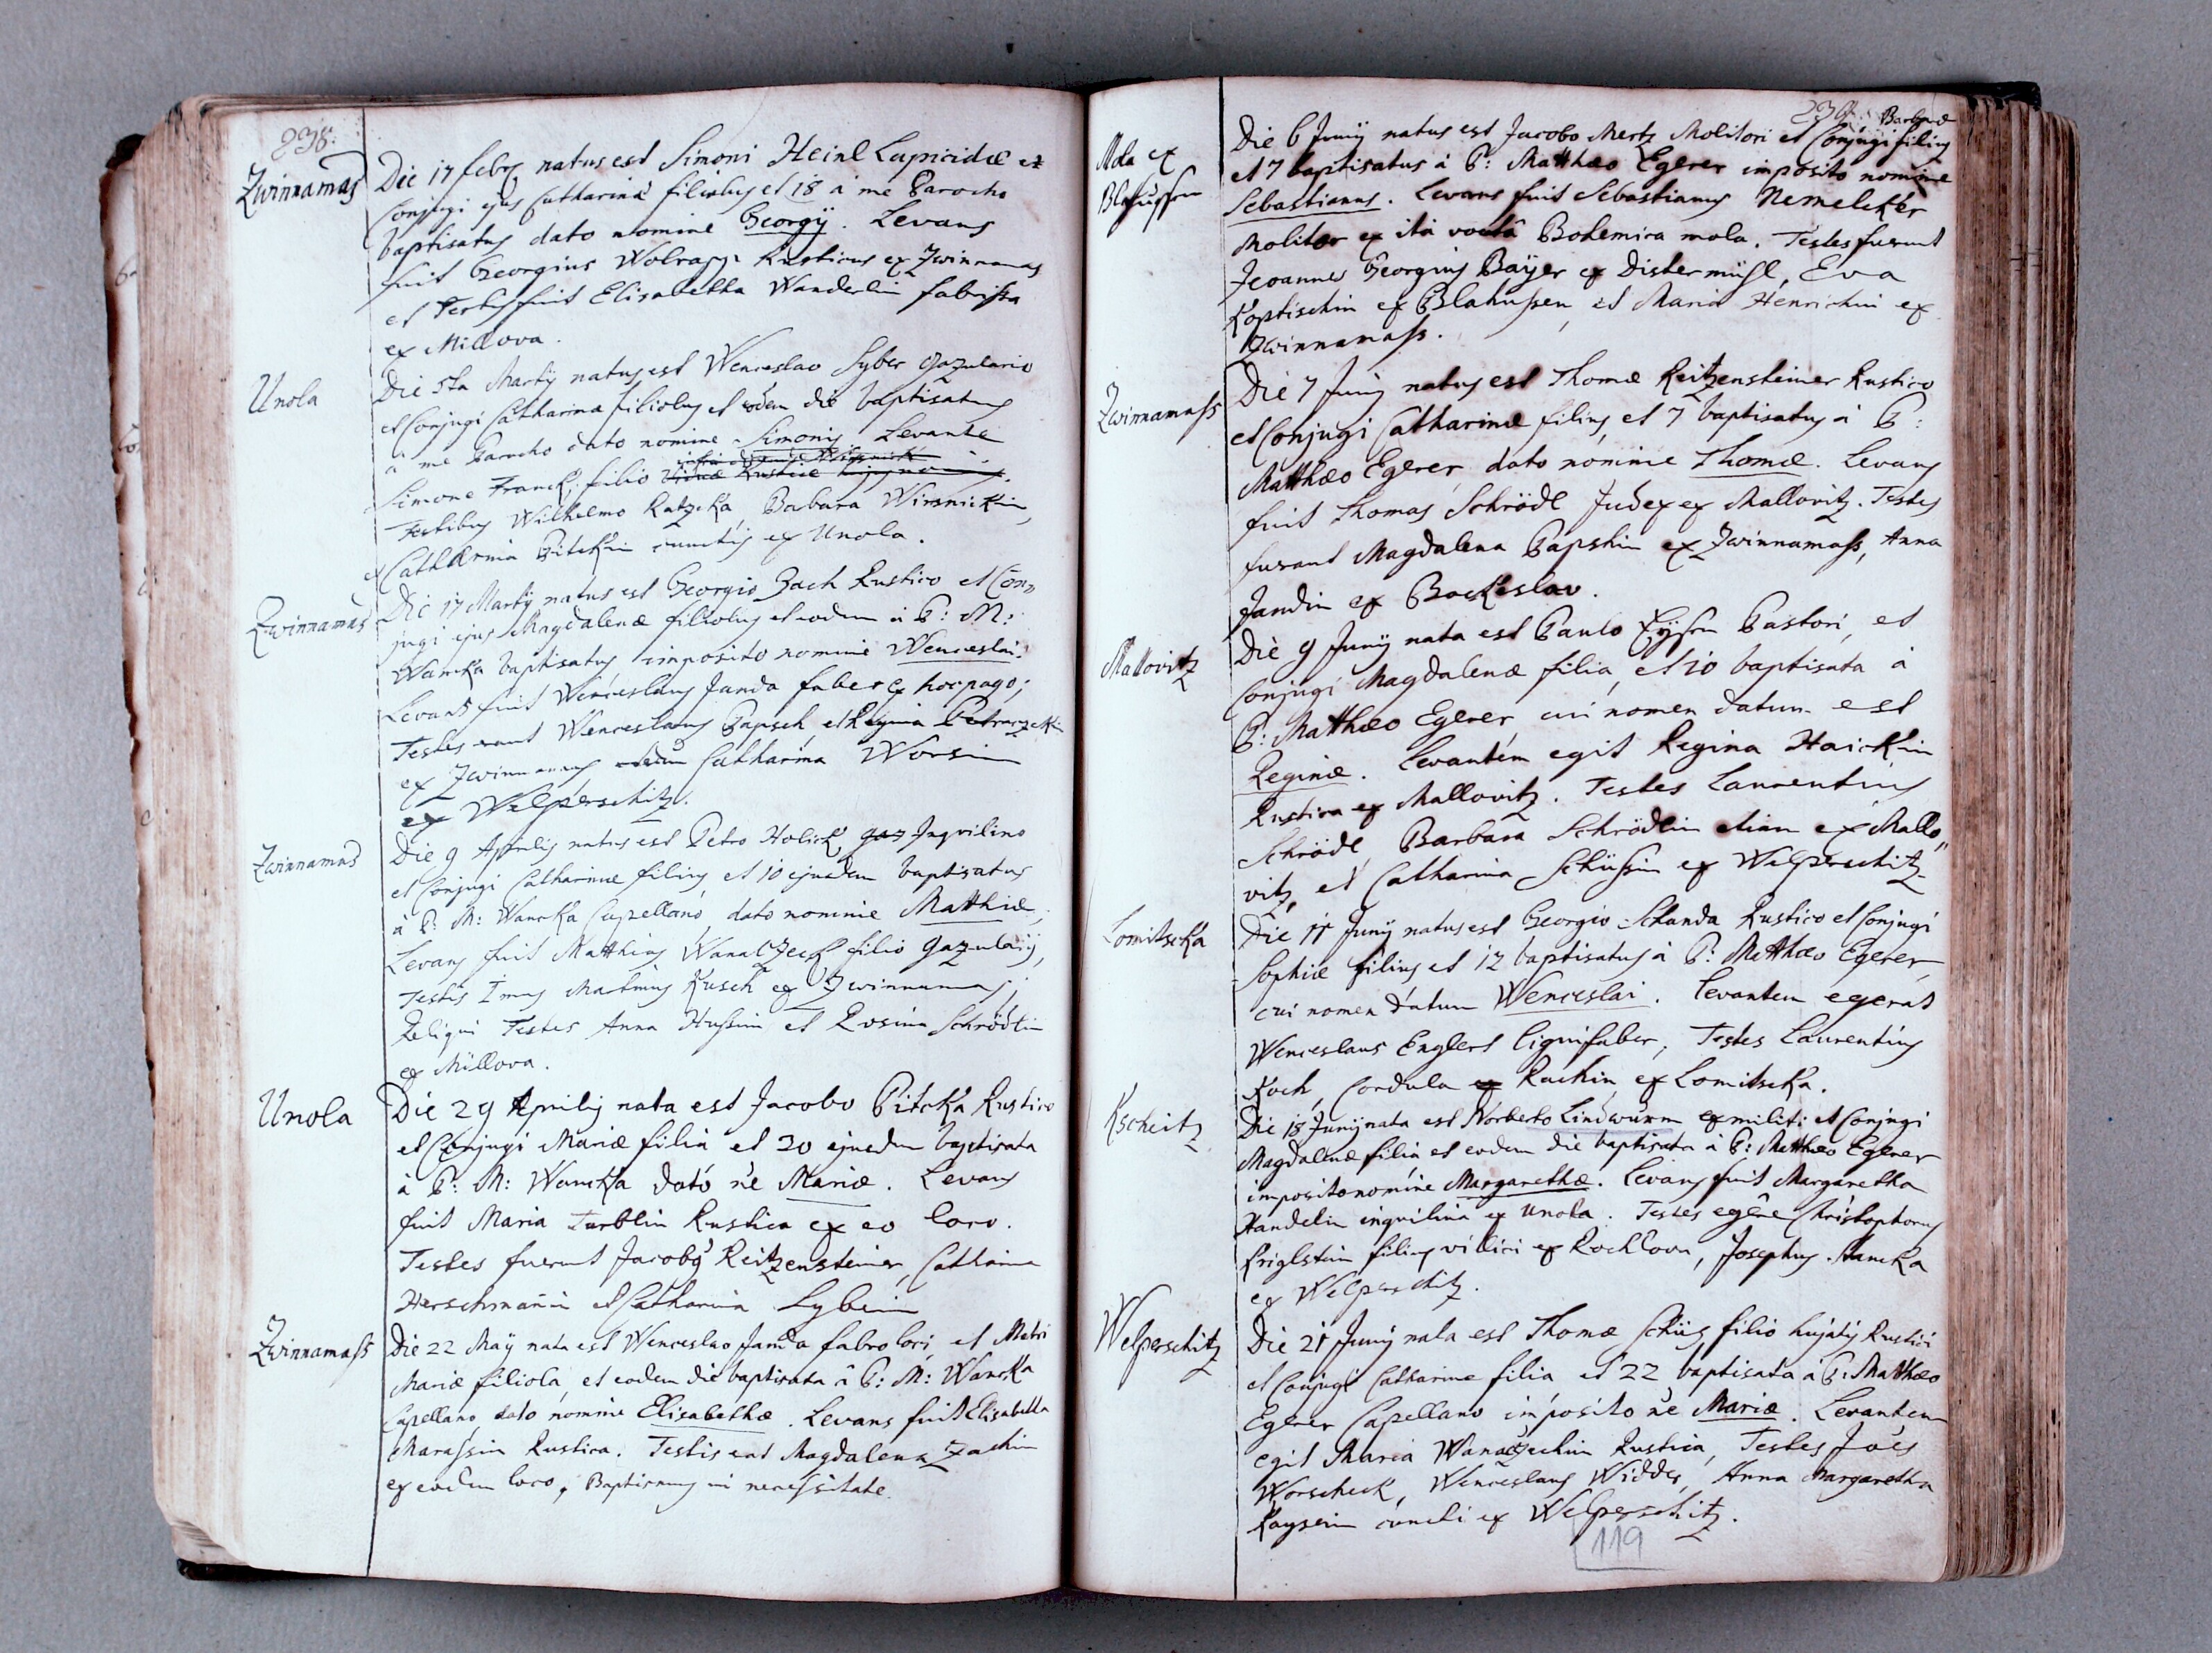 238.
Zwinnamas
Die 17 febr natus est Simoni Heinl Lapicidæ et
Conjugi ejus Catharinæ filiolus et 18 à me Parocho
baptisatus dato nomine Georgÿ. Levans
fuit Georgius Wolrapp Rusticus ex Zwinnamas
et Testis fuit Elisabetha Wanderlin fabrissa
ex Millova.
Unola
Die 5ta Martÿ natus est Wenceslao Syber gazulario
et Conjugi Catharinæ filiolus et eodem die baptisatus
à me Parocho dato nomine Simonis. Levante
Simone Franck, filio viduæ Rusticæ
Testibus Wilhelmo Katzcka Barbara Wirsnickin,
et Catharina Pitckin cunctis ex Unola.
Zwinnamas
Die 17 Martÿ natus est Georgio Zach Rustico et Con=
jugi ejus Magdalenæ filiolus et eodem à P: M:
Wancka baptisatus imposito nomine Wenceslai.
Levans fuit Wenceslaus Janda faber ex hoc pago;
Testes erant Wenceslaus Papsch, et Regina Petraczckin
ex Zwinnamas Catharina Worsin
ex Welperschitz.
Zwinnamas
Die 9 Aprilis natus est Petro Holick gaz Inquilino
et Conjugi Catharinæ filius et 10 ejusdem baptisatus
à P: M: Wancka Capellano, dato nomine Matthiæ,
Levans fuit Matthias Wanaczeck filio gazularÿ,
Testis Imus Mathias Kusch ex Zwinnamas;
Reliqui Testes Anna Hussin et Rosina Schrödlin
ex Millova.
Unola
Die 29 Aprilis nata est Jacobo Pitcka Rustico
et Conjugi Mariæ filia et 30 ejusdem baptisata
à P: M: Wancka dato ñe Mariæ. Levans
fuit Maria Turblin Rustica ex eo loco.
Testes fuerunt Jacobg Reitzensteiner, Catharina
Herschmanin et Catharina Sybrin
Zwinnamass
Die 22 Maÿ nata est Wenceslao Janda fabro loci, et Matri
Mariæ filiola, et eodem die baptisata à P: M: Wancka
Capellano, dato nomine Elisabethæ. Levans fuit Elisabetha
Marassin Rustica. Testis erat Magdalena Zachin
ex eodem loco, Baptismus in necessitate.
239. Barbaræ
Mola ex
Blahussen
Die 6 Junÿ natus est Jacobo Mertz Molitori et Conjugi filius
et 7 baptisatus à P: Matthæo Egerer imposito nomine
Sebastianus. Levans fuit Sebastianus Nemelcker
Molitor ex ita vocata Bohemica mola. Testes fuerunt
Jeoannes Georgius Baÿer ex Distermühl, Eva
Koptischin ex Blahussen, et Maria Henrichin ex
Zwinnamass.
Zwinnamass
Die 7 Junÿ natus est Thomæ Reitzensteiner Rustico
et Conjugi Catharinæ filius, et 7 baptisatus à P:
Matthæo Egerer, dato nomine Thomæ. Levans
fuit Thomas Schrödl Judex ex Mallovitz. Testes
fuerant Magdalena Papshin ex Zwinnamass, Anna
Jandin ex Bockeslav.
Mallovitz
Die 9 Junÿ nata est Paulo Pastori, et
Conjugi Magdalenæ filia, et 10 baptisata à
P: Matthæo Egerer, cui nomen datum est
Reginæ. Levantem egit Regina Haickin
Rustica ex Mallovitz. Testes Laurentius
Schrödl, Barbara Schrödlin etiam ex Mallo„
vitz, et Catharina Schüssin ex Welperschitz.
Lomitscka
Die 11 Junÿ natus est Georgio Schanda Rustico et Conjugi
Sophiæ filius et 12 baptisatus à P: Matthæo Egerer,
cui nomen datum Wenceslai. Levantem egerat
Wenceslaus Englert lignifaber, Testes Laurentius
Koch, Cordula ex Rachin, ex Lomitscka.
Kscheitz
Die 18 Junÿ nata est Norberto Lindwurm exmiliti et Conjugi
Magdalenæ filia et eodem die baptisata à P: Matthæo Egerer
imposito nomine Margarethæ. Levans fuit Margaretha
Handelin inquilina ex Unola. Testes egêre Christophorus
Kriglstein filius villici ex Rochlova, Josephus Hancka
ex Welperschitz.
Welperschitz
Die 21 Junÿ nata est Thomæ Schüs filio hujatis Rustici
et Conjugi Catharinæ filia et 22 baptisata à P: Matthæo
Egerer Capellano imposito ñe Mariæ. Levantem
egit Maria Wanaczechin Rustica, Testes Joës
Worscheck, Wenceslaus Widder, Anna Margaretha
Kayserin cuncti ex Welperschitz.
119